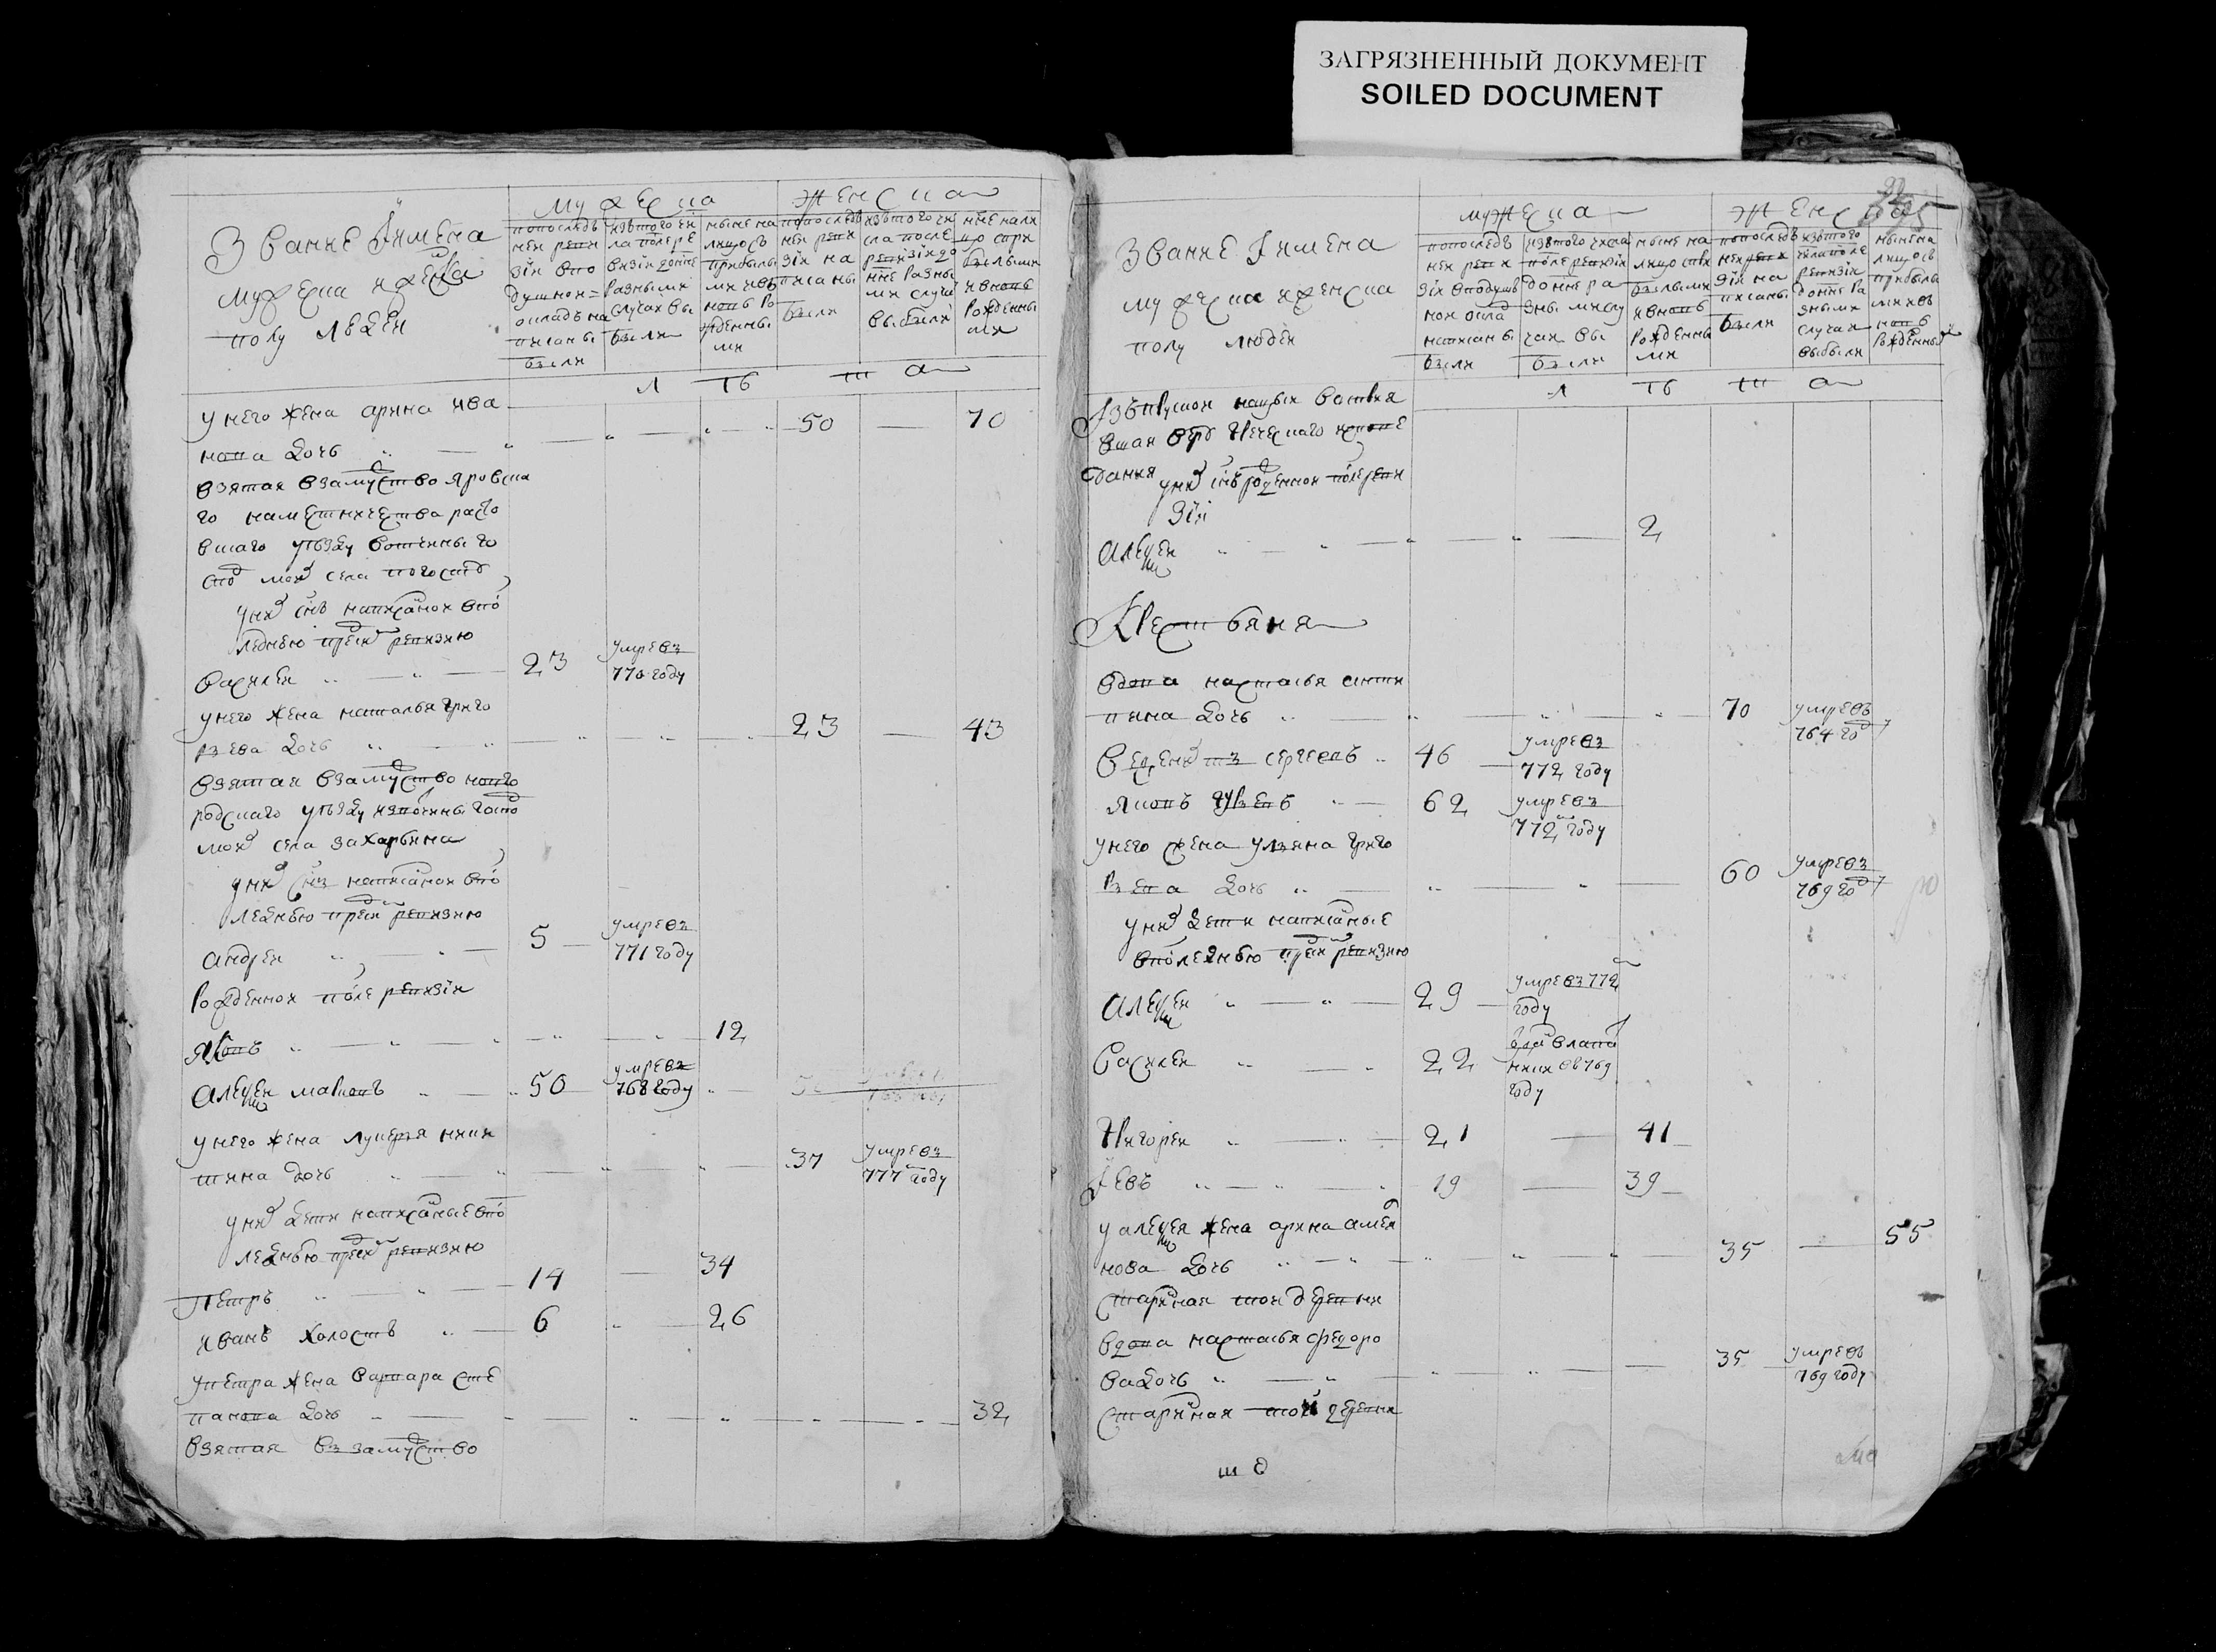 ЗАГРЯЗНЕННЫЙ ДОКУМЕНТ
SOILED DOCUMENT
Звание Iимена
мужеска иженска
полу людеи
мужеска
женска
попослед
неи реви
зiи впо
душном
окладъ на
писаны
были
изтого чи
ла после ре
визiи доныне
разными
случаи вы
были
ныне на
лицо съ
прибылы
ми ивъ
новь ро
жденны
ми
попоследъ
неи реви
зiи на
писаны
были
изтого чи
сла после
ревизiи до
ныне разны
ми случаи
выбыли
ныне нали
цо спри
былыми
ивновь
рожденны
ми
л ѣ т а
унего жена арина ива
нова дочь 50 70
взятая взамуство яровска
го наместничества расто
вскаго уѣзду вотчины го
спд моих села погоста
уних снъ написанои впо
леднею пред ревизию
василеи 23 умре въ
770 году
унего жена наталья григо
рьева дочь 23 43
взятая взамуство новго
родскаго уѣзду извотчины госпо
моих села захарьина
уних снъ написанои впо
леднею пред ревизию
андреи 5 умре въ
771 году
рожденнои после ревизiи
яковъ 12
алексеи марковъ 50 умре въ
768 году
унего жена лукерья ники
тина дочь 37 умре въ
777 году
уних дети написаные впо
леднею пред ревизию
петръ 14 34
иванъ холостъ 6 26
упетра жена варвара сте
панова дочь 32
взятая взамуство
Звание Iимена
мужеска иженска
полу людеи
мужеска
женска
попоследъ
неи реви
зiи вподуш
ном оклад
написаны
были
изтого числа
после ревизiи
доныне ра
зными слу
чаи вы
были
ныне на
лицо сприбылыми
ивновь
рожденны
ми
попоследъ
неи реви
зiи на
писаны
были
изтого
числа после
ревизiи
доныне ра
зными
случаи
выбыли
ныне на
лицо съ
прибылы
ми ивъ
новь
рожденны
л ѣ т а
уних снъ рожденнои после реви
зiи
алексеи 2
Крестьяня
вдова настасья анти
пина дочь 70 умре въ
764 год
сергеевъ 46 умре въ
772 году
яковъ гурьевъ 62 умре въ
772 году
унего жена ульяна григо
рьева дочь 60 умре въ
769 год
уних дети написаные
вполеднею пред ревизию
алексеи 29 умре въ 772
году
василеи 22
769
году
григореи 21 41
Iевъ 19 39
уалексея жена арина семе
нова дочь 35 55
старинная тои деревни
вдова настасья федоро
ва дочь 35 умре въ
769 году
старинная тои деревни